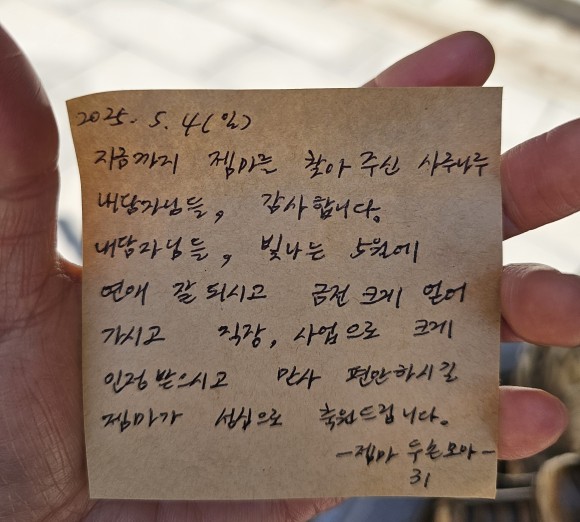 2025. 5. 4 (일)
지금까지 젬마를 찾아 주신 사주나루
내담자님들, 감사합니다.
내담자님들, 빛나는 5월에
연애 잘 되시고 금전 크게 얻어
가시고 직장, 사업으로 크게
인정 받으시고 만사 편안하시길
젬마가 성심으로 축원드립니다.
-젬마 두손모아-
31